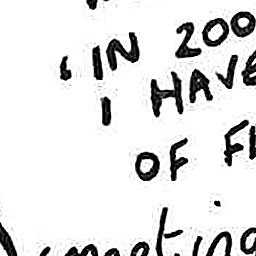 'IN 200
I HAVE
OF F
meeting